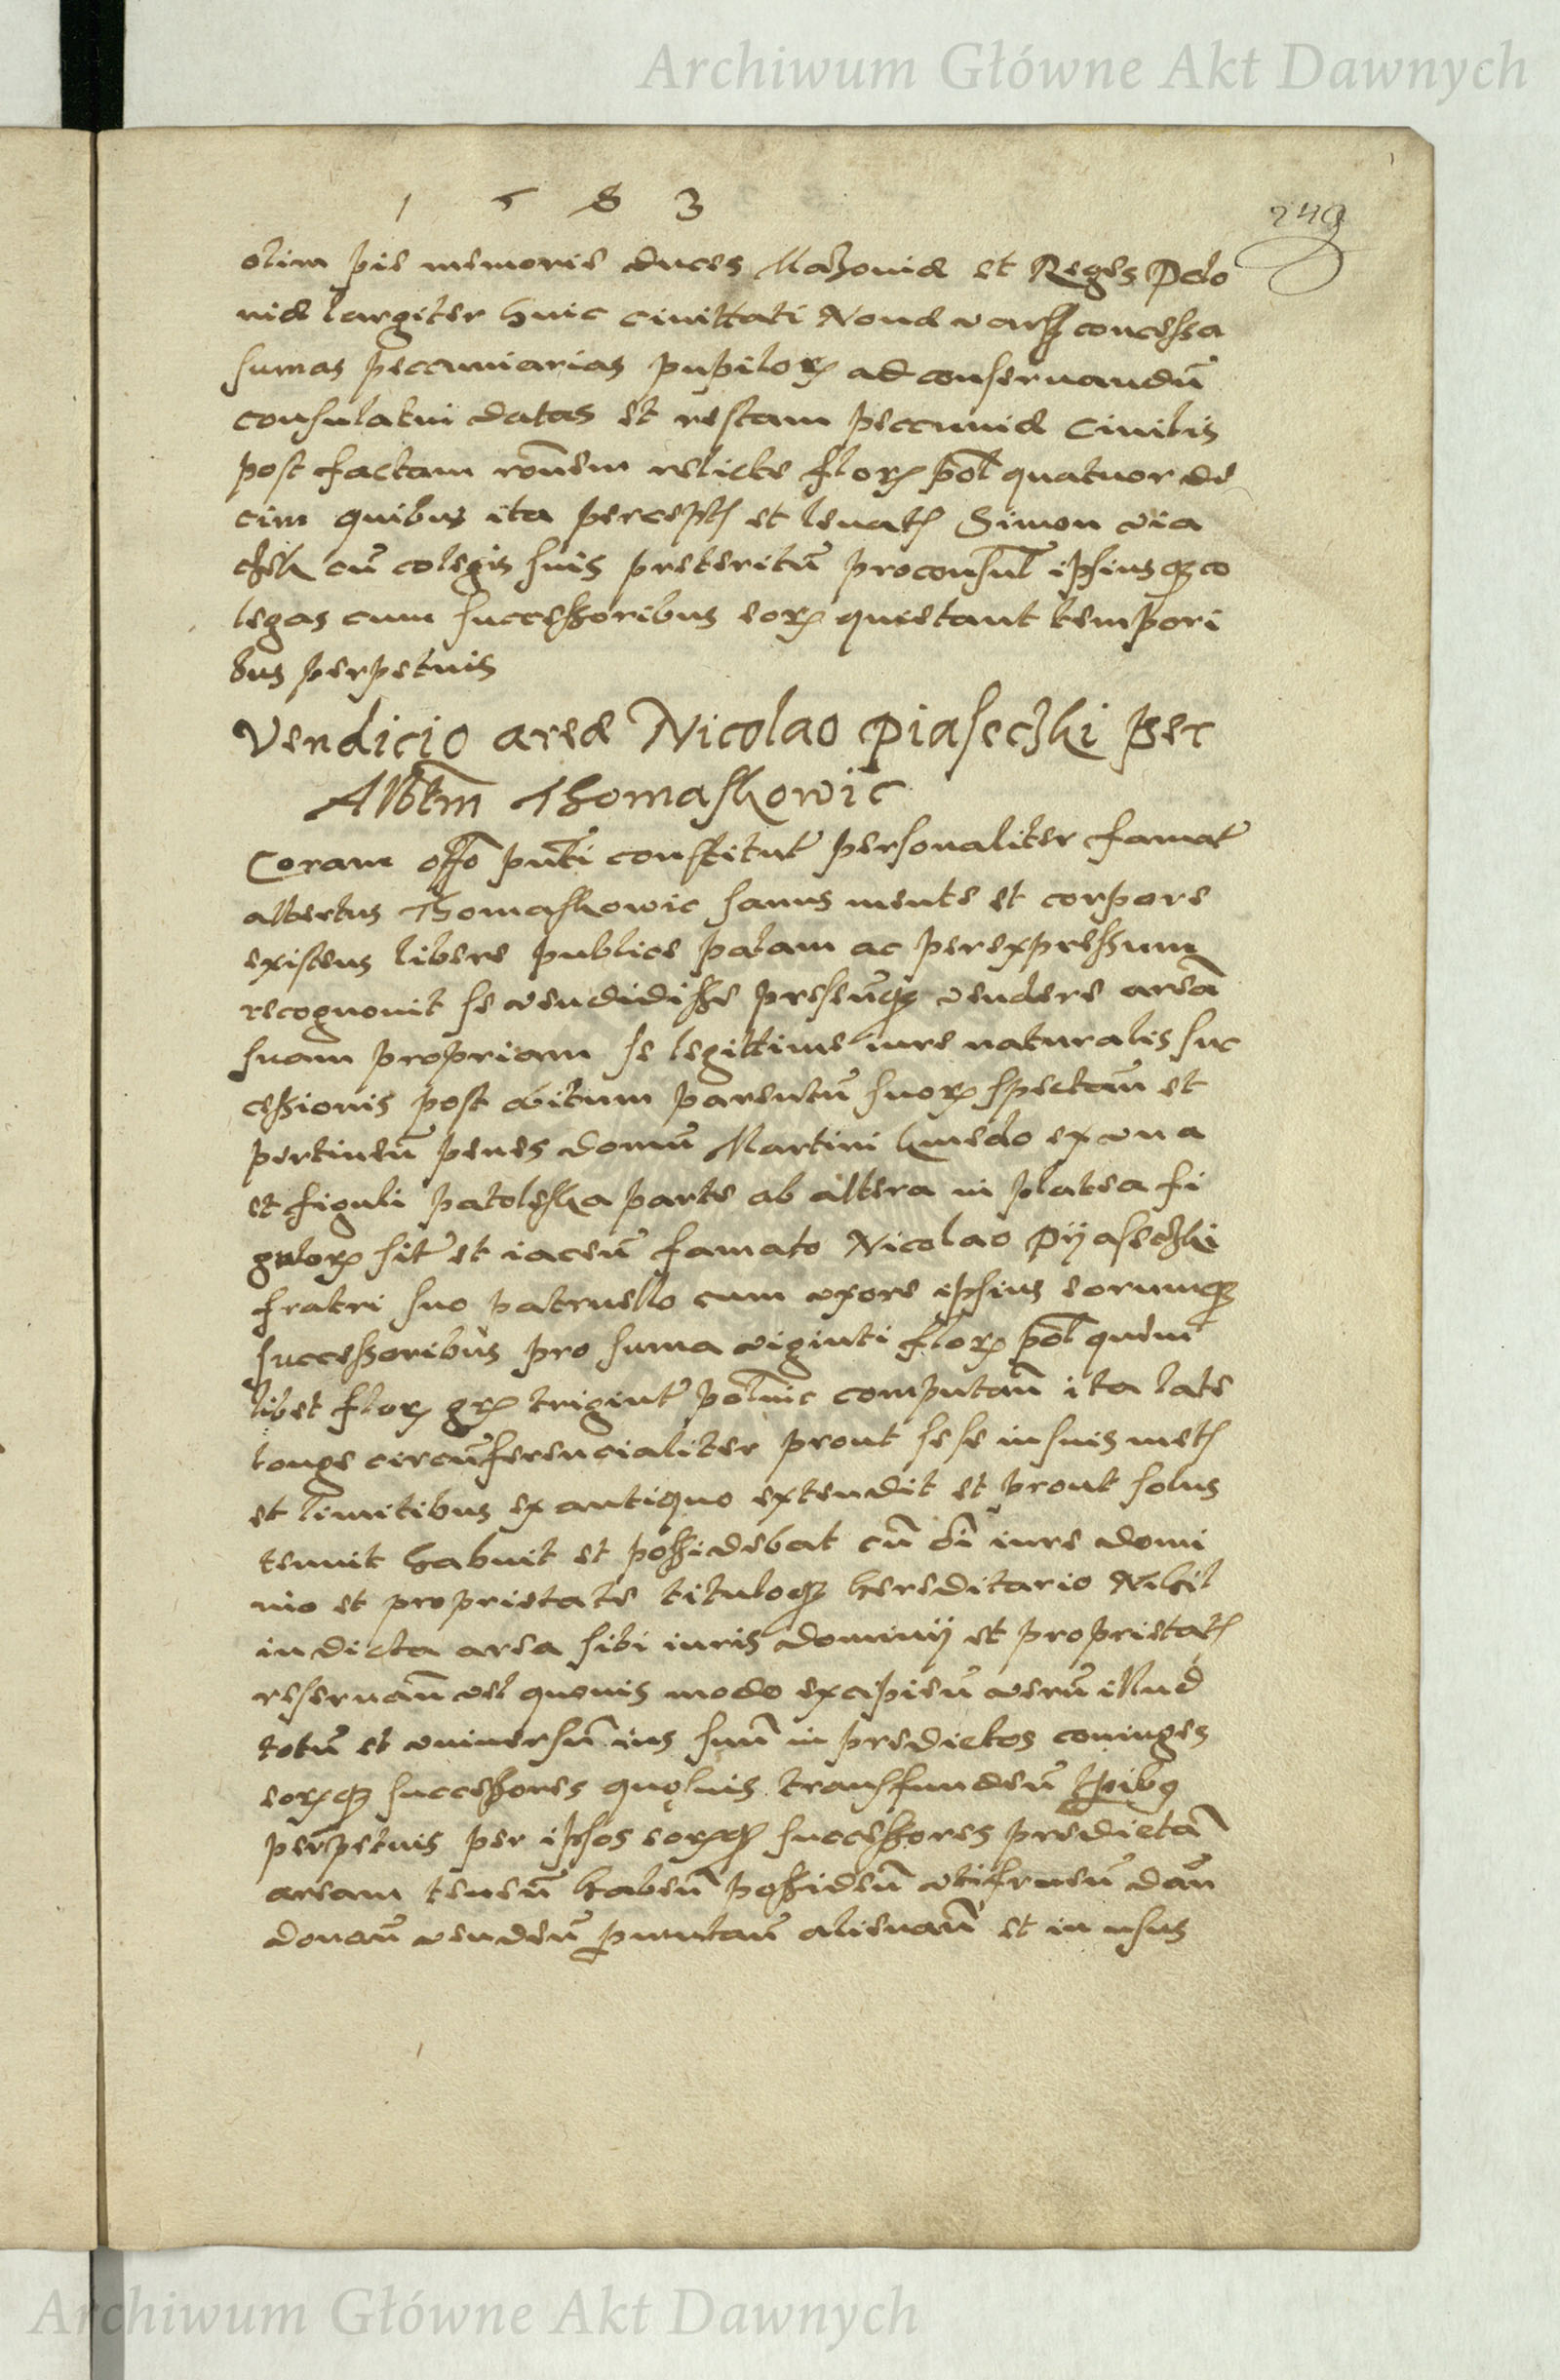 Archiwum Główne Akt Dawnych
1 5 8 3
249
olim pie memorie duces Mazoviæ et Reges Polo
niæ largiter huic civittati Nouæ warß concessa
sumas peccuniarias pupilorꝝ ad conseruandū
consulatui datas et restam peccuniæ Ciuilis
post factam rōnem relicte florꝝ pol quatuor de
cim quibus ita perceptꝭ et leuatꝭ Simon via
cum colegis suis preteritū proconsul ipsiusqꝫ co
legas cum successoribus eorꝝ quietant tempori
bus perpetuis
Vendicio areæ Nicolao Piaseczki per
Albtm̄ Thomaskowic
Coram offo pn̄ti constitut personaliter famat
albertus Thomaskowic sanus mente et corpore
existens libere publice palam ac per expressum
recognouit se vendidisse presenqꝫ vendere areā
suam propriam se legittime iure naturalis suc
cessionis post obitum parentū suorꝝ spectan̄ et
pertinen̄ penes domū Martini kmedo ex vna
et figuli patoleska parte ab altera in platea fi
gulorꝝ sit et iacen̄ famato Nicolao Pyaseczki
fratri suo patruello cum vxore ipsius eorumqꝫ
successoribus pro suma viginti florꝝ pol quem
libet florꝝ grꝝ trigint polnic computan̄ ita late
longe circūferencialiter prout sese in suis metꝭ
et limitibus ex antiquo extendit et prout solus
tenuit habuit et possidebat cū oī iure domi
nio et proprietate tituloqꝫ hereditario Nihil
in dicta area sibi iuris dominij et proprietatꝭ
reseruan̄ vel quouis modo excipien̄ verū illud
totū et vniuersū ius suū in predictos coniuges
eorꝝqꝫ successores transfunden̄ tꝑibꝰ
perpetuis per ipsos eorꝝqꝫ successores predictā
aream tenen̄ haben̄ possiden̄ vtifruen̄ dan̄
donan̄ venden̄ ꝑmutan̄ alienan̄ et in vsus
Archiwum Główne Akt Dawnych